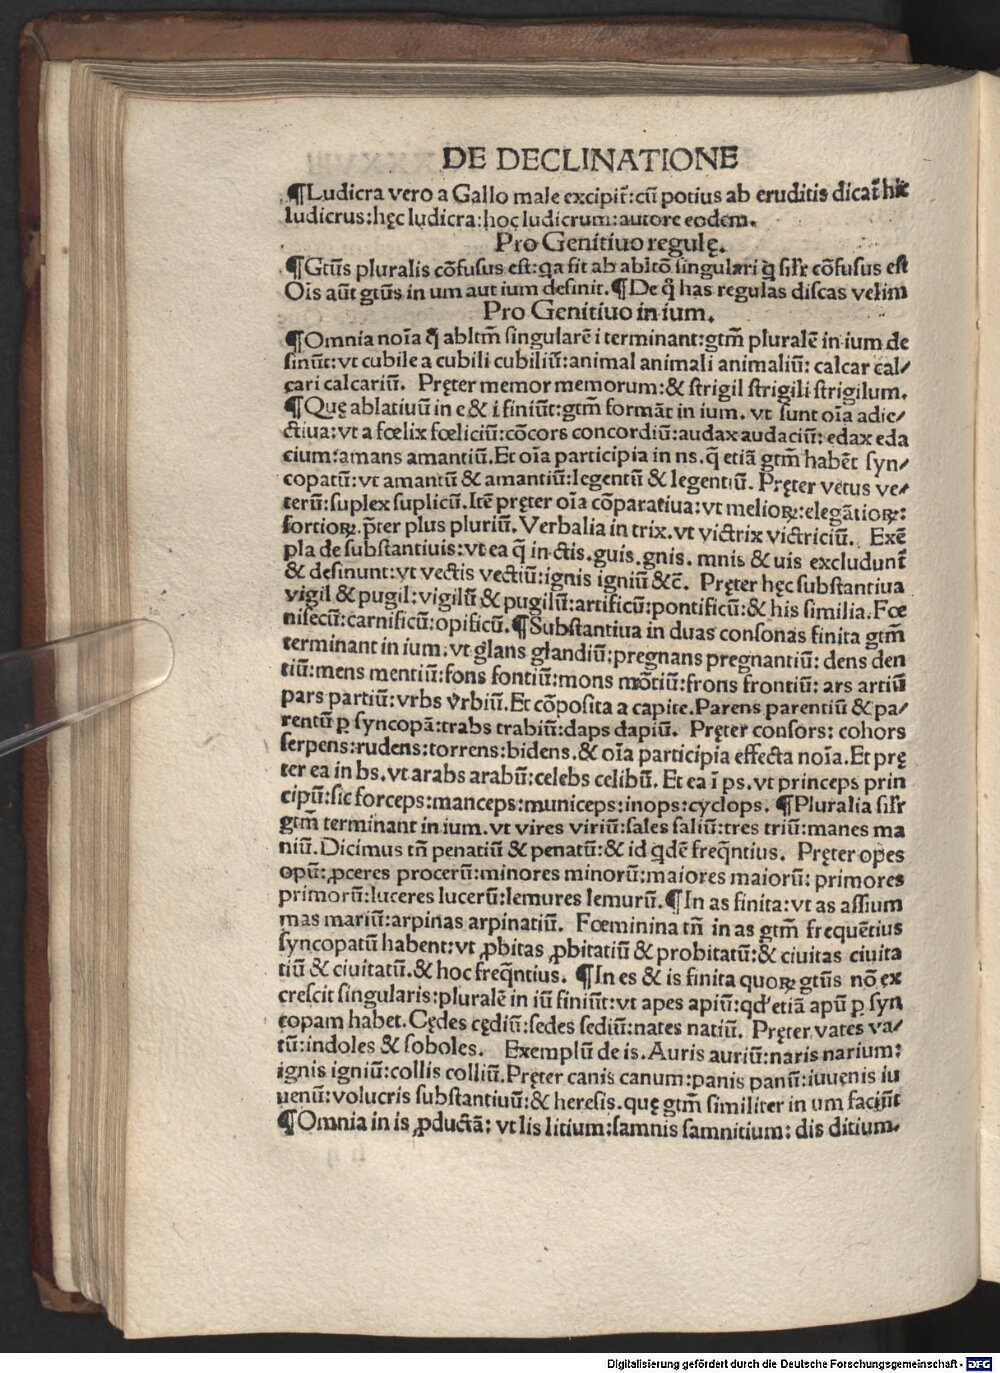 DE DECLINATIONE
¶Ludicra vero a Gallo male excipit᷑:cū potius ab eruditis dicat᷑ hic
ludicrus:hęc ludicra:hoc ludicrum:autore eodem.
Pro Genitiuo regulę.
¶Gtūs pluralis cōfusus est:qa fit ab abltō singulari q silr cōfusus est
Ois aūt gtūs in um aut ium desinit.¶De q̄ has regulas discas velim
Pro Genitiuo in ium.
¶Omnia noīa q̄ abltm̄ singularē i terminant:gtm̄ pluralē in ium de
sinūt:vt cubile a cubili cubiliū:animal animali animaliū: calcar cal⸗
cari calcariū. Pręter memor memorum:& strigil strigili strigilum.
¶Quę ablatiuū in e & i finiūt:gtm̄ formāt in ium. vt sunt oīa adie⸗
ctiua:vt a fœlix fœliciū:cōcors concordiū:audax audaciū: edax eda
cium:amans amantiū.Et oīa participia in ns.q̄ etiā gtm̄ habēt syn⸗
copatū:vt amantū & amantiū:legentū & legentiū. Pręter vetus ve⸗
terū:suplex suplicū.Itē pręter oīa cōparatiua:vt melioꝝ:elegātioꝝ:
fortioꝝ.p̄ter plus pluriū.Verbalia in trix.vt victrix victriciū. Exē
pla de substantiuis:vt ea q̄ in ctis.guis.gnis. mnis & uis excludunt᷑
& desinunt:vt vectis vectiū:ignis igniū &c̄. Pręter hęc substantiua
vigil & pugil:vigilū & pugilū:artificū:pontificū:& his similia.Fœ
nisecū:carnificū:opificū.¶Substantiua in duas consonas finita gtm̄
terminant in ium.vt glans glandiū:pregnans pregnantiū: dens den
tiū:mens mentiū:fons fontiū:mons mōtiū:frons frontiū: ars artiū
pars partiū:vrbs vrbiū.Et cōposita a capite.Parens parentiū & pa⸗
rentū p syncopā:trabs trabiū:daps dapiū. Pręter consors: cohors
serpens:rudens:torrens:bidens.& oīa participia effecta noīa.Et prę
ter ea in bs.vt arabs arabū:celebs celibū. Et ea ī ps.vt princeps prin
cipū:sic forceps:manceps:municeps:inops:cyclops. ¶Pluralia silr
gtm̄ terminant in ium.vt vires viriū:sales saliū:tres triū:manes ma
niū.Dicimus tn̄ penatiū & penatū:& id qdē freq̄ntius. Pręter opes
opū:ꝓceres procerū:minores minorū:maiores maiorū: primores
primorū:luceres lucerū:lemures lemurū.¶In as finita:vt as assium
mas mariū:arpinas arpinatiū. Fœminina tn̄ in as gtm̄ frequētius
syncopatū habent:vt ꝓbitas ꝓbitatiū & probitatū:& ciuitas ciuita
tiū & ciuitatū.& hoc freq̄ntius. ¶In es & is finita quoꝝ gtūs nō ex
crescit singularis:pluralē in iū finiūt:vt apes apiū:qd' etiā apū p syn
copam habet.Cędes cędiū:sedes sediū:nates natiū. Pręter vates va⸗
tū:indoles & soboles. Exemplū de is.Auris auriū:naris narium:
ignis igniū:collis colliū.Pręter canis canum:panis panū:iuuenis iu
uenū:volucris substantiuū:& heresis.quę gtm̄ similiter in um faciūt
¶Omnia in is ꝓductā: vt lis litium:samnis samnitium: dis ditium.
Digitalisierung gefördert durch die Deutsche Forschungsgemeinschaft - DFG